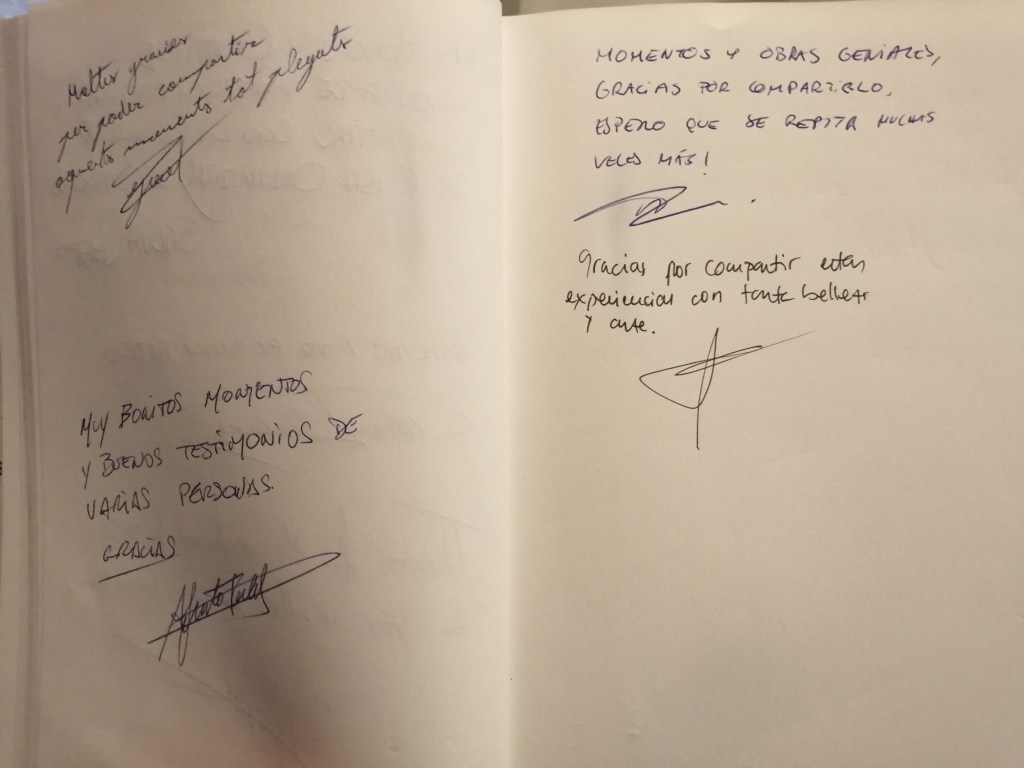 Moltes gracies
per poder compartir
aquests moments tot plegats
MUY BONITOS MOMENTOS
Y BUENOS TESTIMONIOS DE
VARIAS PERSONAS.
GRACIAS
MOMENTOS Y OBRAS GENIALES,
GRACIAS POR COMPARTIRLO,
ESPERO QUE SE REPITA MUCHAS
VECES MÁS!
Gracias por compartir estas
experiencias con tanta belleza
y arte.